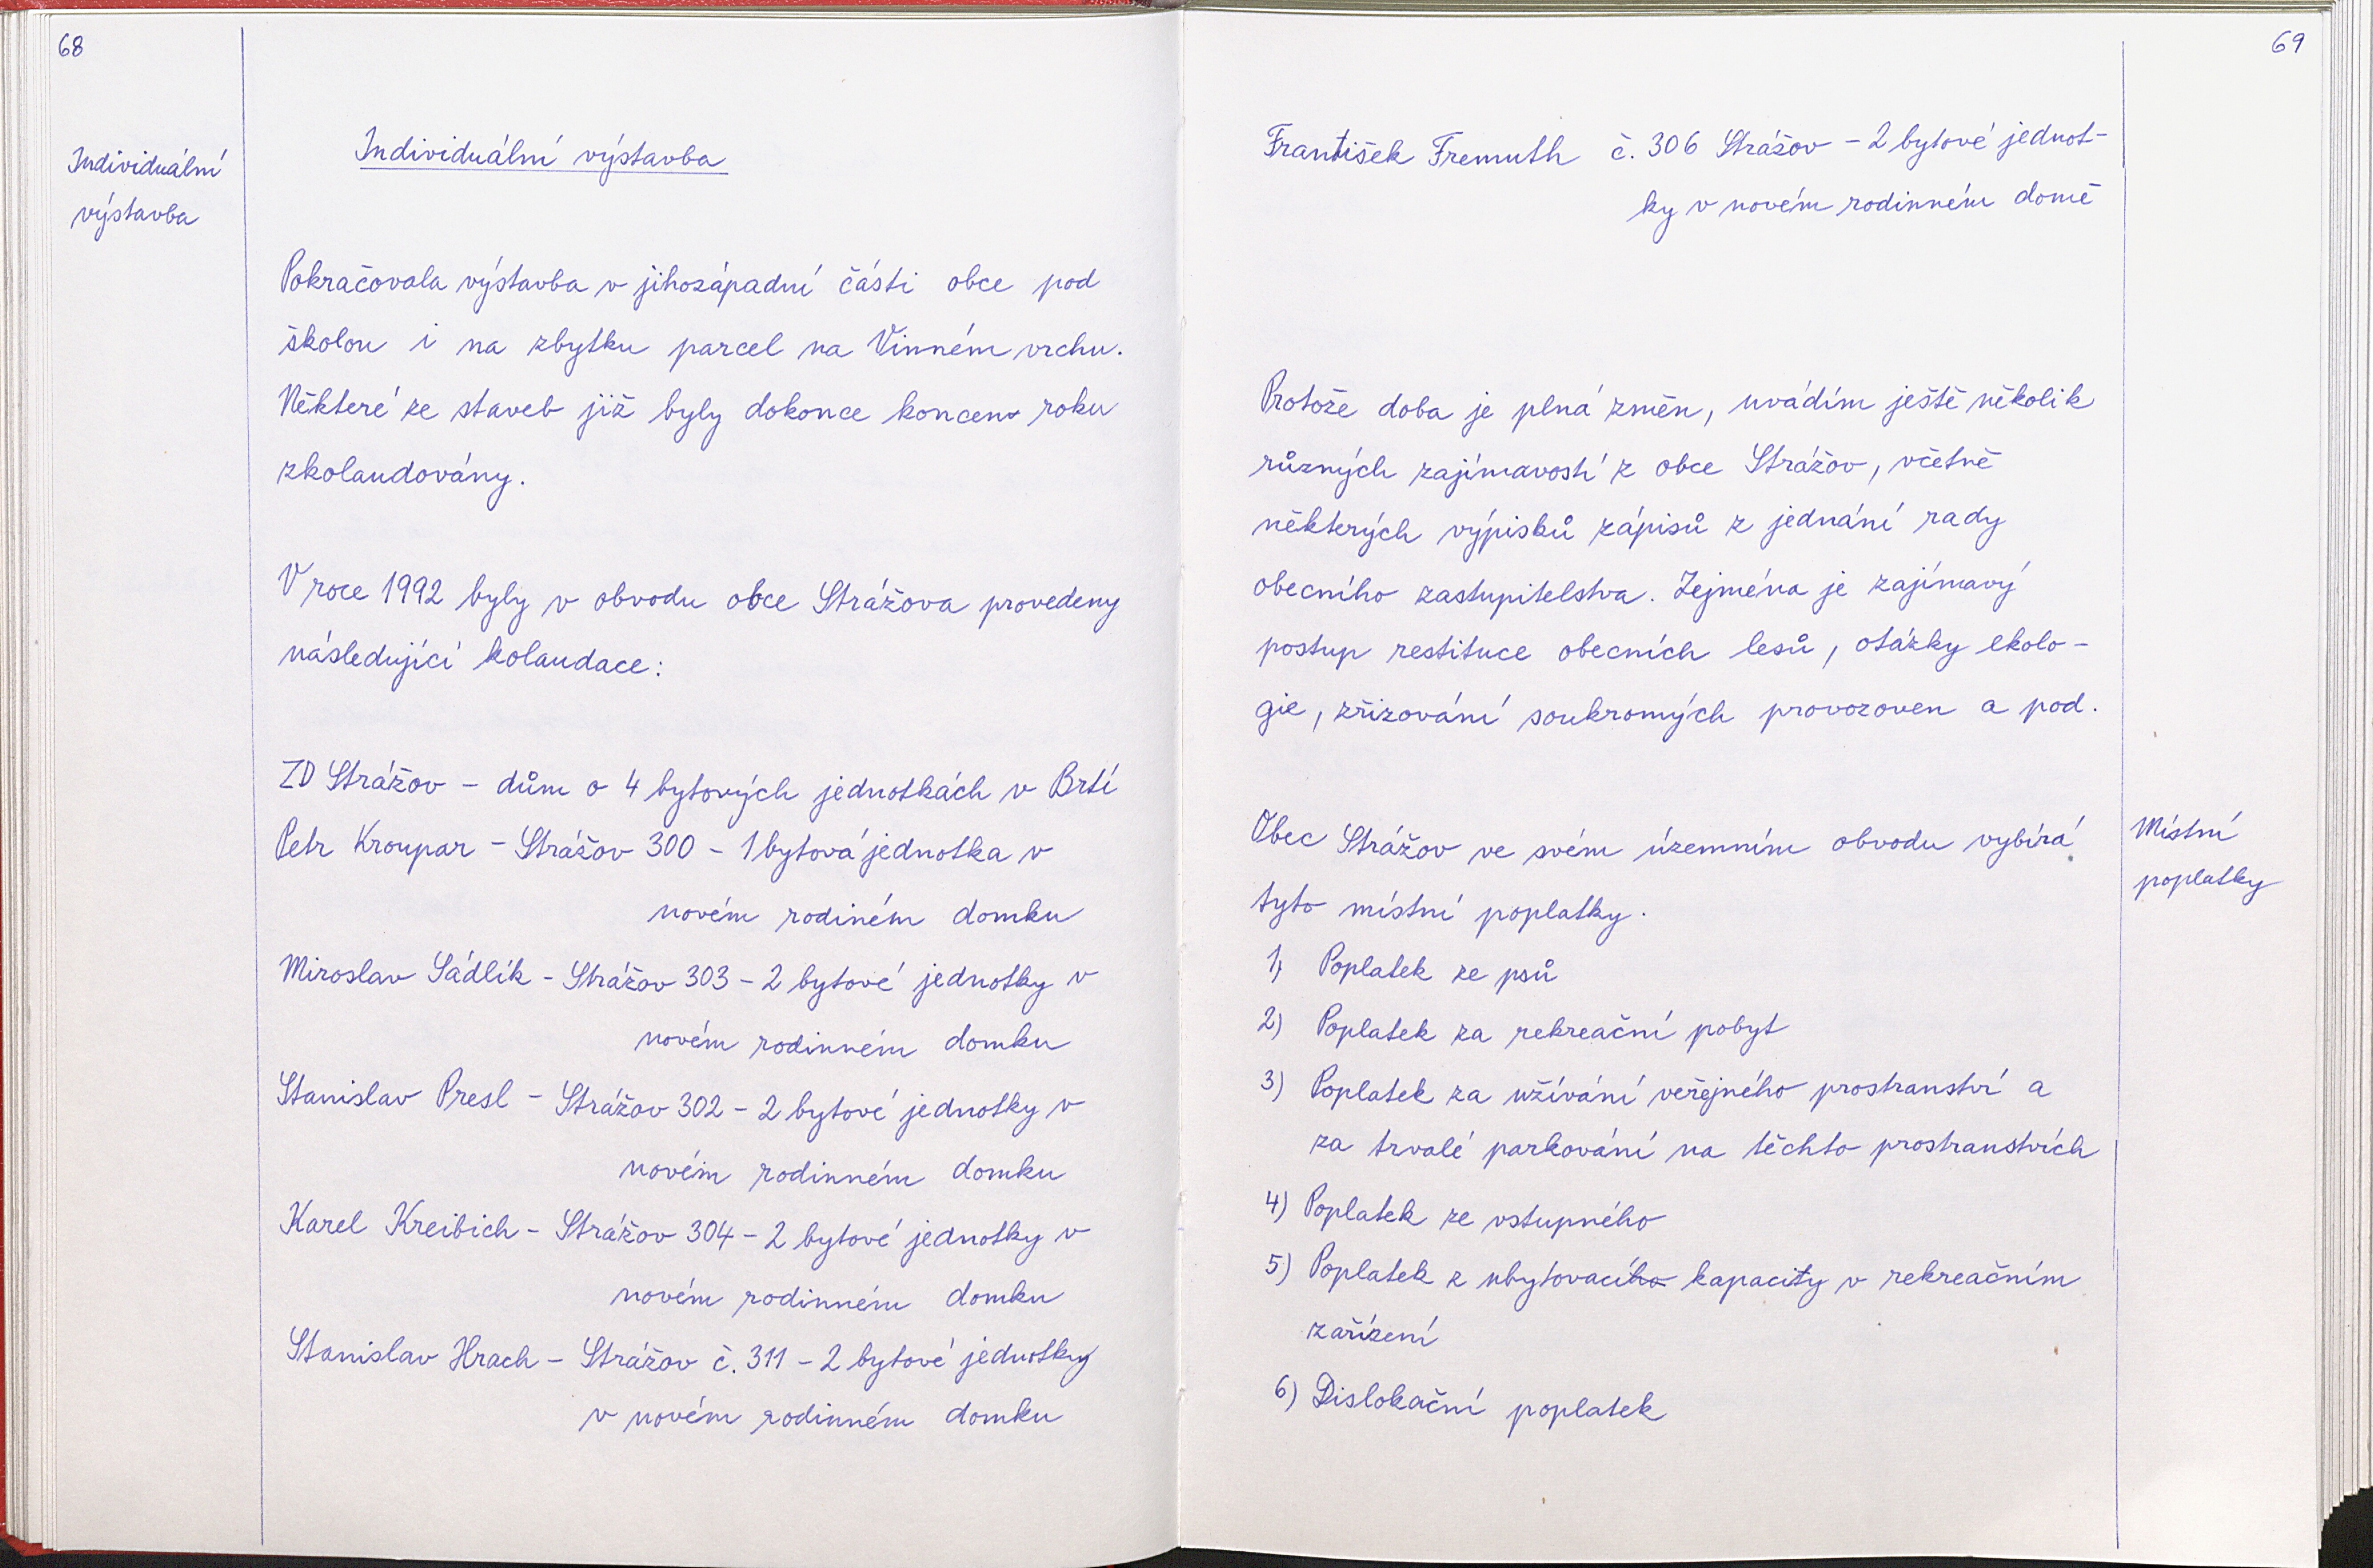 68
Individuální
výstavba
Individuální výstavba
Pokračovala výstavba v jihozápadní části obce pod
školou i na zbytku parcel na Vinném vrchu.
Některé ze staveb již byly dokonce koncem roku
zkolaudovány.
V roce 1992 byly v obvodu obce Strážova provedeny
následující kolaudace:
ZD Strážov - dům o 4 bytových jednotkách v Brtí
Petr Kroupar - Strážov 300 - 1 bytová jednotka v
novém rodiném domku
Miroslav Sádlík - Strážov 303 - 2 bytové jednotky v
novém rodinném domku
Stanislav Presl - Strážov 302 - 2 bytové jednotky v
novém rodinném domku
Karel Kreibich - Strážov 304 - 2 bytové jednotky v
novém rodinném domku
Stanislav Hrach - Strážov č. 311 - 2 bytové jednotky
v novém rodinném domku
69
František Fremuth č. 306 Strážov - 2 bytové jednot-
ky v novém rodinném domě
Protože doba je plná změn, uvádím ještě několik
různých zajímavostí z obce Strážov, včetně
některých výpisků zápisů z jednání rady
obecního zastupitelstva. Zejména je zajímavý
postup restituce obecních lesů, otázky ekolo-
gie, zřizování soukromých provozoven a pod.
Obec Strážov ve svém územním obvodu vybírá
tyto místní poplatky.
Místní
poplatky
1) Poplatek ze psů
2) Poplatek za rekreační pobyt
3) Poplatek za užívání veřejného prostranství a
za trvalé parkování na těchto prostranstvích
4) Poplatek ze vstupného
5) Poplatek z ubytovacího kapacity v rekreačním
zařízení
6) Dislokační poplatek